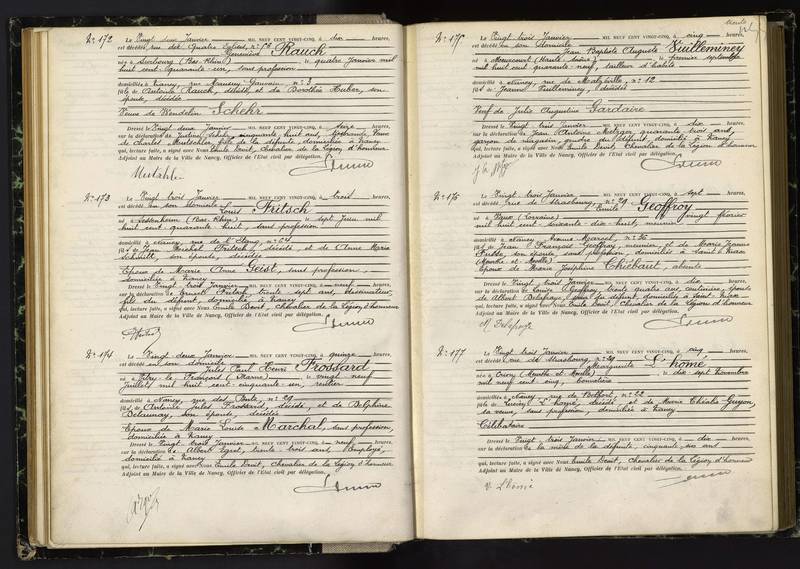 N° 172
Le Vingt deux Janvier MIL NEUF CENT VINGT-CINQ, à dix heures,
est décédée rue des Quatre Eglises, n°
Geneviève Rauch
née à Surbourg (Bas-Rhin) le quatre janvier mil
huit cent quarante un, sans profession
domiciliée à Nancy, rue n° 3
fille de Antoine Rauch, décédé, et de Dorothée Huber, son
épouse, décédée
Veuve de Wendelin Schehr
Dressé le Vingt deux Janvier MIL NEUF CENT VINGT-CINQ, à seize heures,
sur la déclaration de cinquante huit ans,
de Charles fille de la défunte, domiciliée à Nancy
qui, lecture faite, a signé avec Nous Emile Chevalier de la Légion d'honneur
Adjoint au Maire de la Ville de Nancy, Officier de l'Etat civil par délégation.
N° 173
Le Vingt trois Janvier MIL NEUF CENT VINGT-CINQ, à trois heures,
est décédé en son domicile
Louis Fritsch
né à (Bas-Rhin) le sept Juin mil
huit cent quarante huit, sans profession
domicilié à Nancy, rue de l'Etang, n° 24
fils de Jean Michel Fritsch, décédé, et de Anne Marie
Schmitt, son épouse, décédée
Epoux de Marie Anne Geist, sans profession,
domiciliée à Nancy
Dressé le Vingt trois Janvier MIL NEUF CENT VINGT-CINQ, à neuf heures,
sur la déclaration de Fritsch, trente sept ans, dessinateur
fils du défunt, domicilié à Nancy
qui, lecture faite, a signé avec Nous Emile Chevalier de la Légion d'honneur
Adjoint au Maire de la Ville de Nancy, Officier de l'Etat civil par délégation.
N° 174
Le Vingt deux Janvier MIL NEUF CENT VINGT-CINQ, à quinze heures,
est décédé en son domicile
Jules Paul Henri Frossard
né à Vitry le François (Marne) le vingt neuf
Juillet mil huit cent cinquante un, rentier
domicilié à Nancy, rue des Ponts, n° 29
fils de Antoine Jules Frossard, décédé, et de Delphine
Delaunay, son épouse, décédée
Epoux de Marie Louise Marchal, sans profession,
domiciliée à Nancy
Dressé le Vingt trois Janvier MIL NEUF CENT VINGT-CINQ, à neuf heures,
sur la déclaration de Albert trente trois ans, Employé,
domicilié à Nancy
qui, lecture faite, a signé avec Nous Emile Chevalier de la Légion d'honneur
Adjoint au Maire de la Ville de Nancy, Officier de l'Etat civil par délégation.
N° 175
Le Vingt trois Janvier MIL NEUF CENT VINGT-CINQ, à cinq heures,
est décédé en son domicile
Jean Baptiste Auguste Vuilleminey
né à (Haute Saône) le premier septembre
mil huit cent quarante neuf, tailleur d'habits
domicilié à Nancy, rue de Malzéville, n° 12
fils de Jeanne Vuilleminey, décédée
Veuf de Julie Augustine Gardaire
Dressé le Vingt trois Janvier MIL NEUF CENT VINGT-CINQ, à dix heures,
sur la déclaration de Jean Antoine Metzger, quarante trois ans,
garçon de magasin, gendre du défunt, domicilié à Nancy
qui, lecture faite, a signé avec Nous Emile Chevalier de la Légion d'honneur
Adjoint au Maire de la Ville de Nancy, Officier de l'Etat civil par délégation.
N° 176
Le Vingt trois Janvier MIL NEUF CENT VINGT-CINQ, à sept heures,
est décédé rue de Strasbourg, n° 29
Emile Geoffroy
né à (Lorraine) le vingt février
mil huit cent soixante dix huit, meunier
domicilié à Nancy, n° 30
fils de Jean François Geoffroy, meunier, et de Marie Jeanne
son épouse, sans profession, domiciliés à Saint Max
(Meurthe et Moselle)
Epoux de Marie Joséphine Thiébaut, absente
Dressé le Vingt trois Janvier MIL NEUF CENT VINGT-CINQ, à dix heures,
sur la déclaration de Louise Geoffroy, trente quatre ans, couturière, épouse
de Albert Delafaye, soeur du défunt, domiciliée à Saint Max
qui, lecture faite, a signé avec Nous Emile Chevalier de la Légion d'honneur
Adjoint au Maire de la Ville de Nancy, Officier de l'Etat civil par délégation.
N° 177
Le Vingt trois Janvier MIL NEUF CENT VINGT-CINQ, à cinq heures,
est décédée rue de Strasbourg, n° 29
Marguerite L'homé
née à (Meurthe et Moselle) le dix sept Novembre
mil neuf cent cinq,
domiciliée à Nancy, rue de Belfort, n° 22
fille de L'homé, décédé, et de Marie Guyon,
sa veuve, sans profession, domiciliée à Nancy
Célibataire
Dressé le Vingt trois Janvier MIL NEUF CENT VINGT-CINQ, à dix heures,
sur la déclaration de la mère de la défunte, cinquante six ans
qui, lecture faite, a signé avec Nous Emile Chevalier de la Légion d'honneur
Adjoint au Maire de la Ville de Nancy, Officier de l'Etat civil par délégation.
V. Lhomé